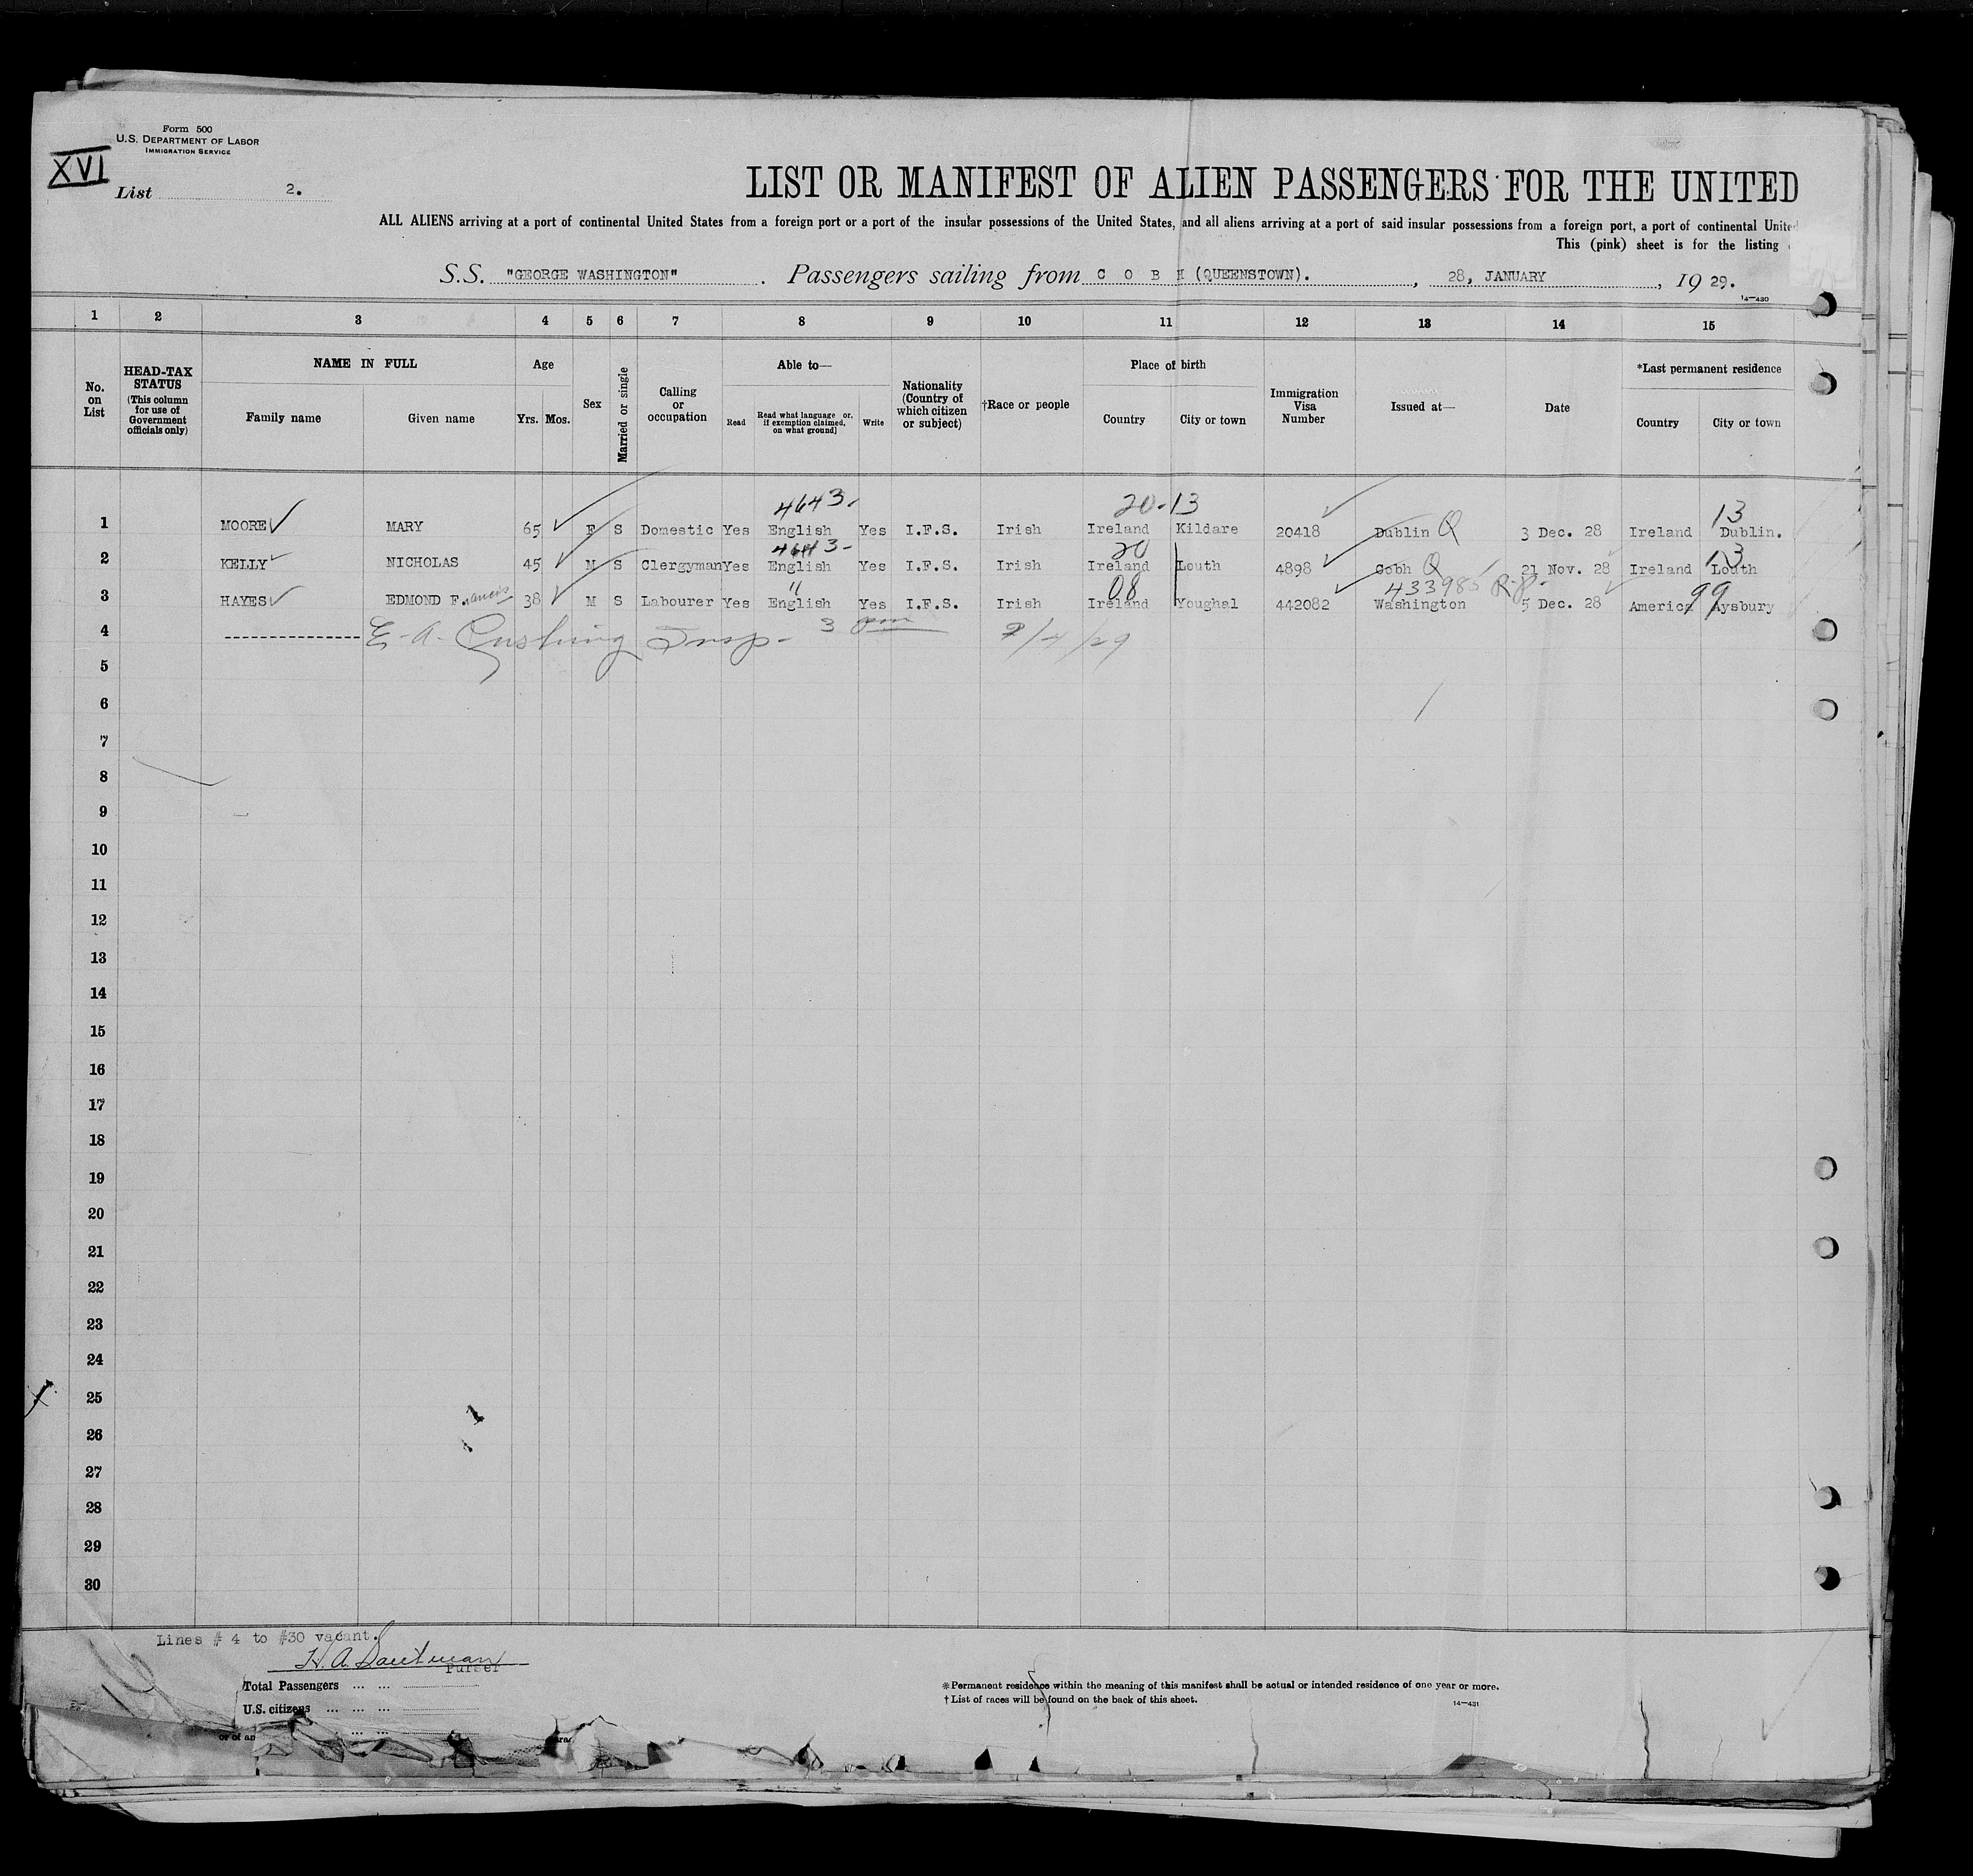 Form 500
U.S. DEPARTMENT OF LABOR
IMMIGRATION SERVICE
XVI
List 2.
LIST OR MANIFEST OF ALIEN PASSENGERS FOR THE UNITED
ALL ALIENS arriving at a port of continental United States from a foreign port or a port of the insular possessions of the United States, and all aliens arriving at a port of said insular possessions from a foreign port, a port of continental United
This (pink) sheet is for the listing
S.S. "GEORGE WASHINGTON". Passengers sailing from C O B H (QUEENSTOWN)., 28, JANUARY, 19 29.
14—430
1 2 3 4 5 6 7 8 9 10 11 12 13 14 15
No. on List
HEAD-TAX STATUS (This column for use of Government officials only)
NAME IN FULL
Family name Given name
Age
Yrs. Mos.
Sex
Married or single
Calling or occupation
Able to—
Read Read what language or, if exemption claimed, on what ground) Write
Nationality (Country of which citizen or subject)
†Race or people
Place of birth
Country City or town
Immigration Visa Number
Issued at—
Date
*Last permanent residence
Country City or town
4643. 20-13 13
1 MOORE MARY 65 F S Domestic Yes English Yes I.F.S. Irish Ireland Kildare 20418 Dublin Q 3 Dec. 28 Ireland Dublin.
4643- 20 13
2 KELLY NICHOLAS 45 M S Clergyman Yes English Yes I.F.S. Irish Ireland Louth 4898 Cobh Q 21 Nov. 28 Ireland Louth
" 08 433985 R.P. 99
3 HAYES EDMOND F.rancis 38 M S Labourer Yes English Yes I.F.S. Irish Ireland Youghal 442082 Washington 5 Dec. 28 America Aysbury
4 E. A. Cushing Insp- 3 pm 2/4/29
5
6
7
8
9
10
11
12
13
14
15
16
17
18
19
20
21
22
23
24
25
26
27
28
29
30
Lines # 4 to #30 vacant.
H. A.
Purser
Total Passengers
U.S. citizens
or of an
*Permanent residence within the meaning of this manifest shall be actual or intended residence of one year or more.
†List of races will be found on the back of this sheet.
14—431